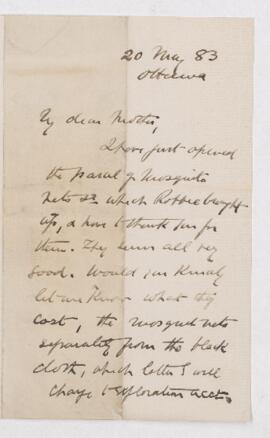 20 May 83
Ottawa
My dear Mother,
I have just opened
the parcel of Mosquito
nets &c which Robbie brought
up, & have to thank you for
them. They seem all very
good. Would you kindly
let me know what they
cost, the mosquito nets
separately from the black
cloth, which latter I will
charge to exploration acct.